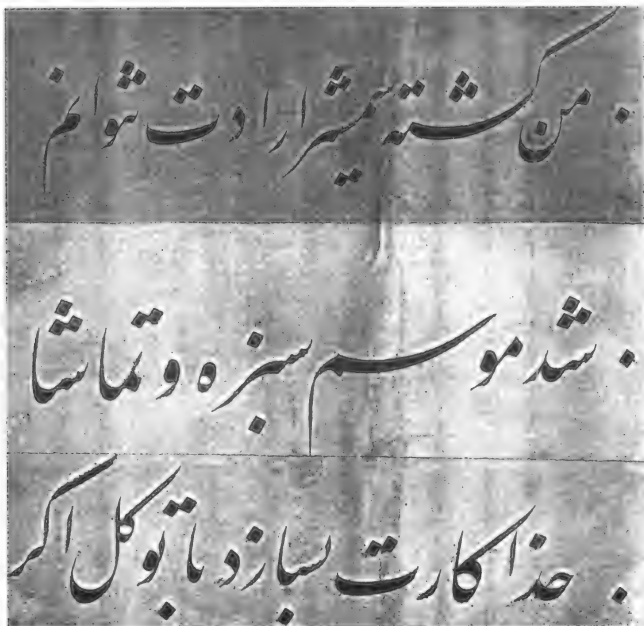 من کشته شمشیر ارادت
شد موسم سبزه و تماشا
خدا کارت بسازد با توکل اکر